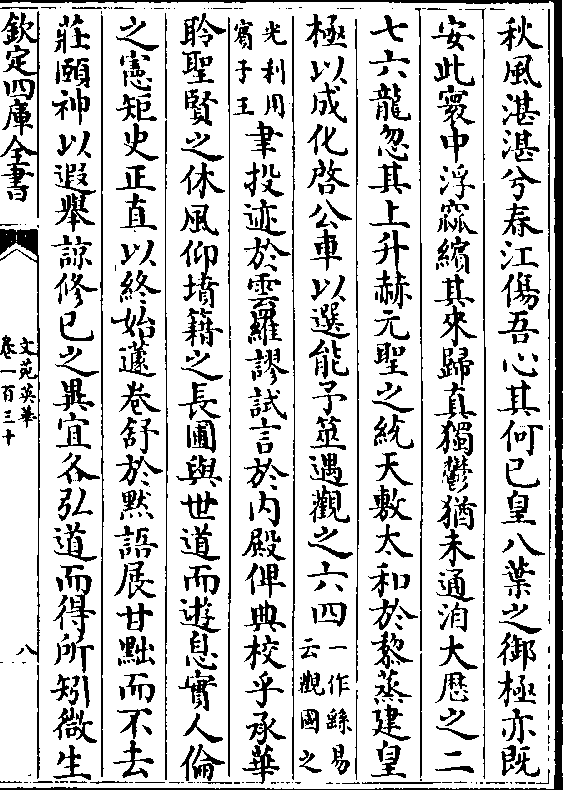 秋風湛湛兮春江傷吾心其何已皇八葉之御極亦既
安此寰中浮窳繽其來歸真獨鬱猶未通洎大歴之二
七六龍忽其上升赫元聖之統天敷太和於黎蒸建皇
極以成化啓公車以選能予筮遇觀之六四一作繇易云觀國之
光利用賓于王聿投迹於雲羅謬試言於內殿俾典校乎承華
聆聖賢之休風仰墳籍之長圃與世道而遊息實人倫
之憲矩史正直以終始蘧卷舒於黙語展甘黜而不去
莊頤神以遐舉諒修已之異宜各弘道而得所矧微生
欽定四庫全書
文苑英華
卷一百三十
八